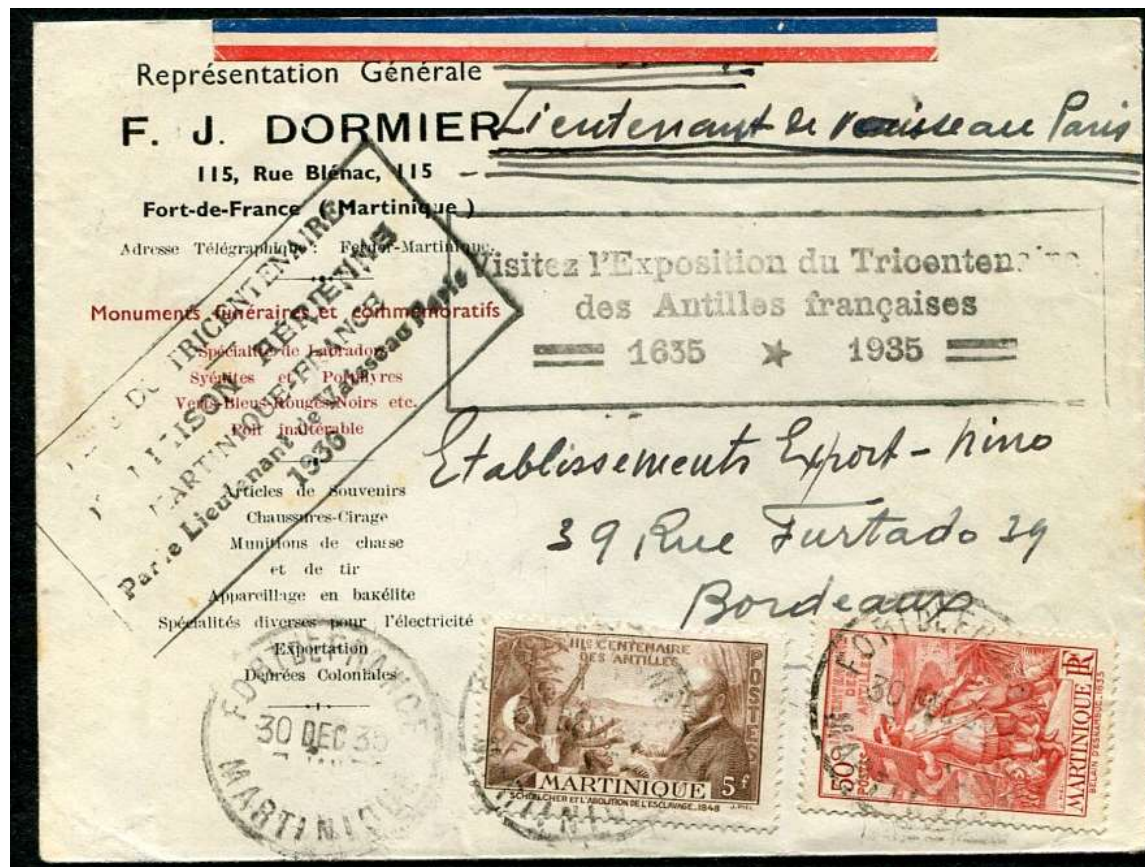 Représentation Générale
F. J. DORMIER
115, Rue Blénac, 115
Fort-de-France (Martinique)
Adresse Télégraphique : Ferdor-Martinique.
Lieutenant de vaisseau Paris
Monuments funéraires et commémoratifs
Spécialité de Labrador
Syénites et Porphyres
Verts-Bleus-Rouges-Noirs etc.
Poli inaltérable
Articles de Souvenirs
Chaussures-Cirage
Munitions de chasse
et de tir
Appareillage en bakélite
Spécialités diverses pour l'électricité
Exportation
Denrées Coloniales
DU TRICENTENAIRE
LIAISON AÉRIENNE
MARTINIQUE-FRANCE
Par le Lieutenant de Vaisseau Paris
1936
Visitez l'Exposition du Tricentenaire
des Antilles françaises
1635 ★ 1935
Etablissements Export-
39 Rue Furtado 39
Bordeaux
FORT DE FRANCE
30 DEC 35
MARTINIQUE
IIIe CENTENAIRE
DES ANTILLES
POSTES
MARTINIQUE 5f
SCHOELCHER ET L'ABOLITION DE L'ESCLAVAGE. 1848
J. PIEL
FORT DE FR
30
50c POSTES
MARTINIQUE RF
BELAIN D'ESNAMBUC. 1635